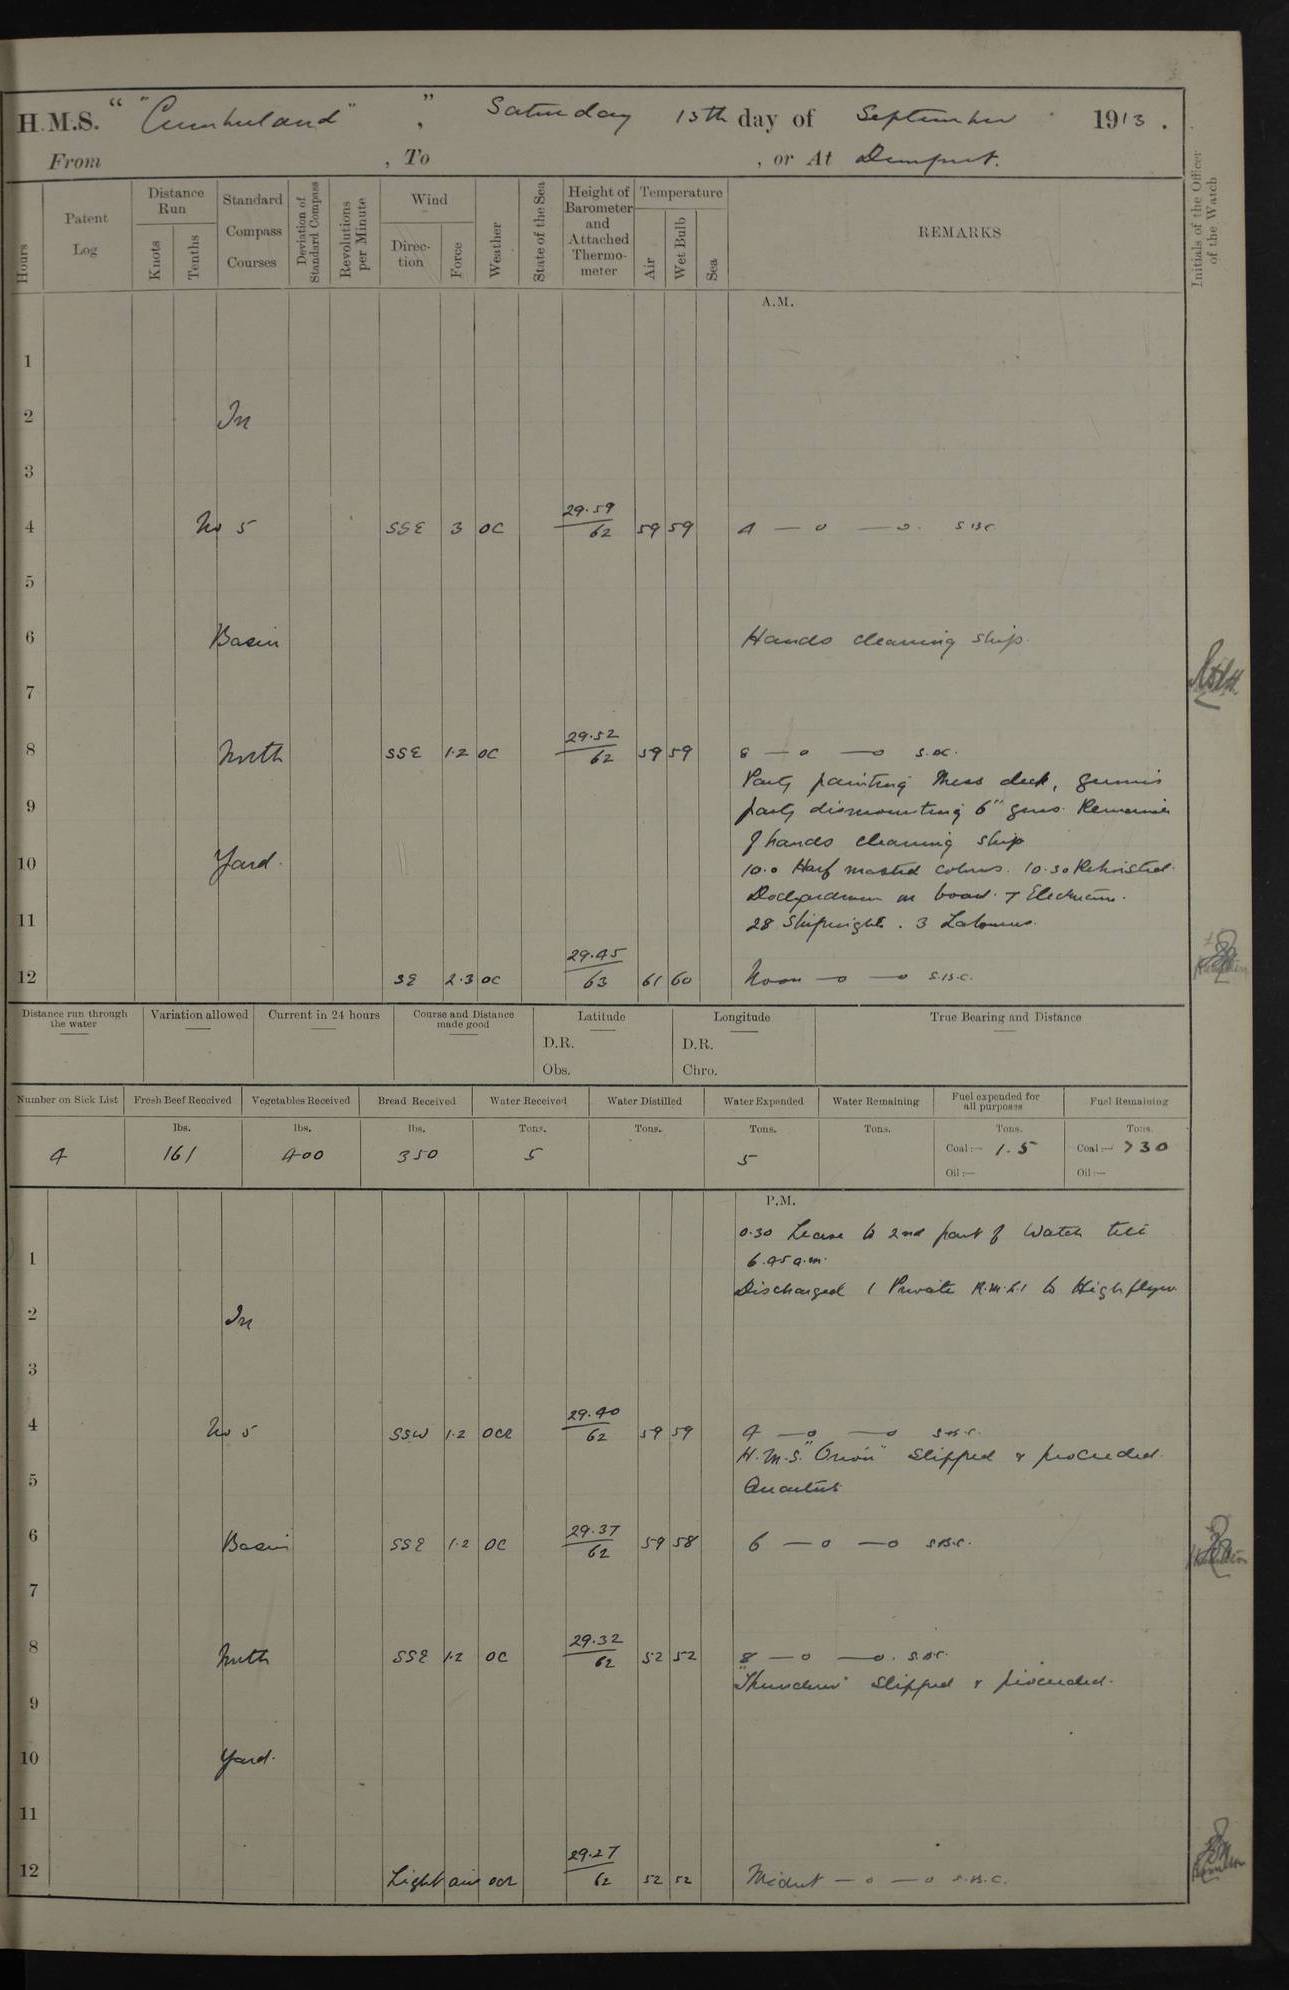 H.M.S. " "Cumberland" ", Saturday 13th day of September 1913.
From , To , or At Devonport.
Hours
Patent Log
Distance Run
Knots
Tenths
Standard Compass Courses
Deviation of Standard Compass
Revolutions per Minute
Wind
Direction
Force
Weather
State of the Sea
Height of Barometer and Attached Thermometer
Temperature
Air
Wet Bulb
Sea
REMARKS
Initials of the Officer of the Watch
A.M.
1
2 In
3
4 No 5 SSE 3 OC 29.59 62 59 59 4 — o — o. S.B.C
5
6 Basin Hands cleaning ship.
7
8 North SSE 1.2 OC 29.52 62 59 59 8 — o — o S.B.C.
Party painting Mess deck, gunners
9 party dismounting 6" guns. Remainder
of hands cleaning ship
10 Yard. 10.0 Half masted colours. 10.30 Rehoisted.
Dockyardmen on board. 7 Electricians.
11 28 Shipwrights. 3 Labourers.
12 SE 2.3 OC 29.45 63 61 60 Noon — o — o S.B.C.
Distance run through the water
Variation allowed
Current in 24 hours
Course and Distance made good
Latitude
D.R.
Obs.
Longitude
D.R.
Chro.
True Bearing and Distance
Number on Sick List
Fresh Beef Received
Vegetables Received
Bread Received
Water Received
Water Distilled
Water Expended
Water Remaining
Fuel expended for all purposes
Fuel Remaining
lbs. lbs. lbs. Tons. Tons. Tons. Tons. Tons. Tons.
4 161 400 350 5 5 Coal:— 1.5 Coal:— 730
Oil:— Oil:—
P.M.
0.30 Leave to 2nd part of Watch till
1 6.45 a.m.
Discharged 1 Private R.M.L.I to Highflyer
2 In
3
4 No 5 SSW 1.2 OCR 29.40 62 59 59 4 — o — o S.B.C.
H.M.S. "Orion" slipped & proceeded.
5 Quarters
6 Basin SSE 1.2 OC 29.37 62 59 58 6 — o — o S.B.C.
7
8 North SSE 1.2 OC 29.32 62 52 52 8 — o — o. S.B.C.
"Thunderer" slipped & proceeded.
9
10 Yard.
11
12 Light air OCR 29.27 62 52 52 Midnt — o — o S.B.C.